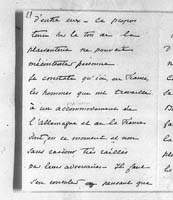 d'entre eux - Ce propos
tenu sur le ton de la
plaisanterie ne pouvait
mécontenter personne.
Je constate qu'ici en France,
les hommes qui ont travaillé
à un accommodement de
l'allemagne et de la France
sont en ce moment et non
sans raison très raillés
par leurs adversaires - Il faut
s'en consoler en pensant que